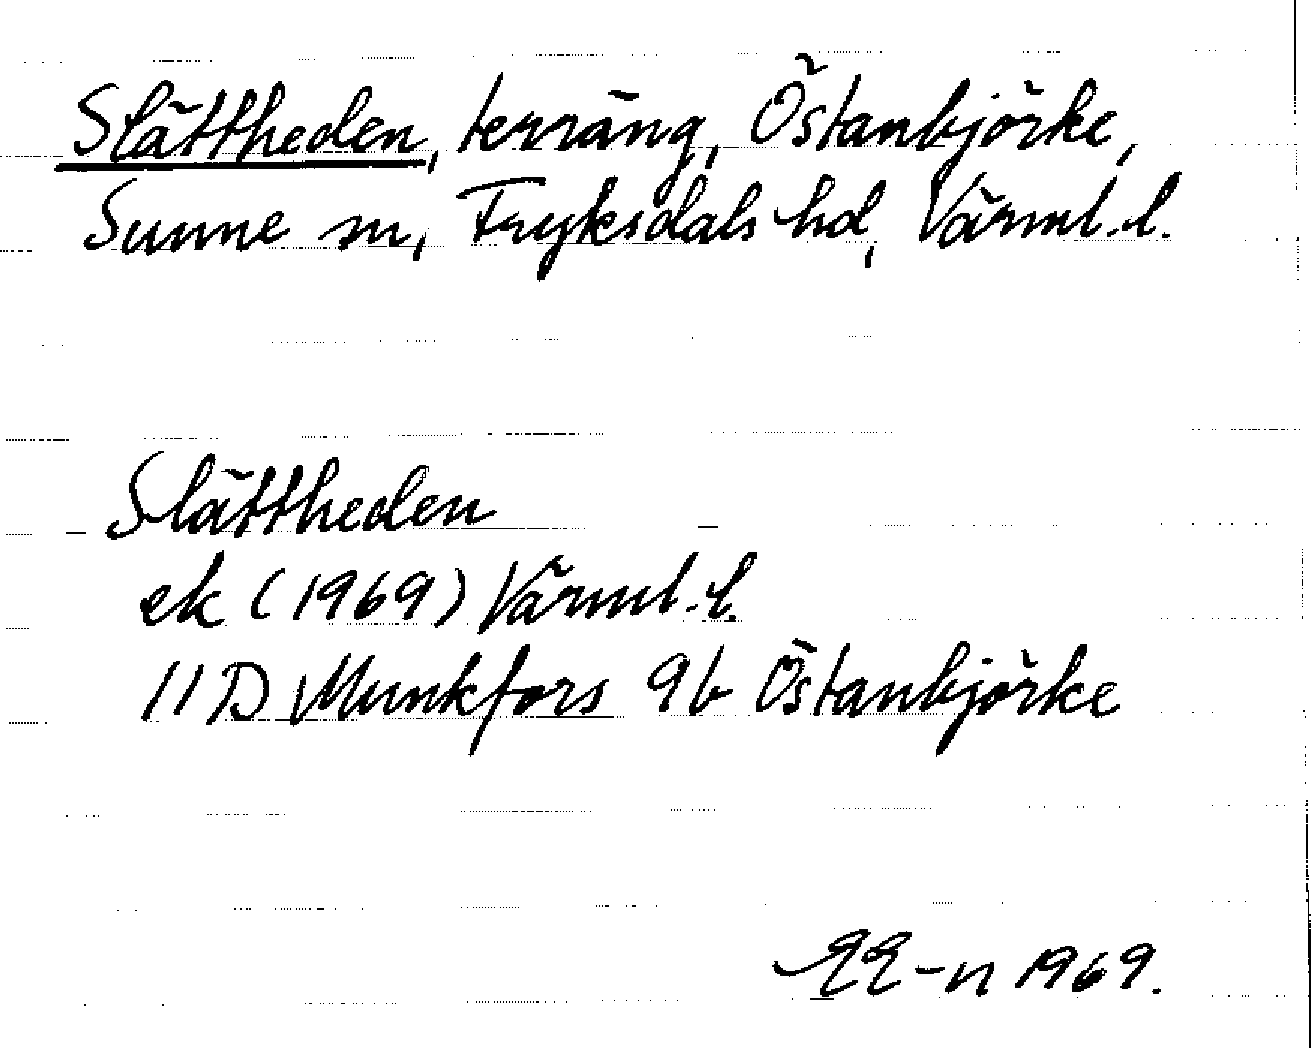 Slättheden, terräng, Östanbjörke,
Sunne sn, Fryksdals hd, Värml. l.
Slättheden
ek (1969) Värml. l.
11 D Munkfors 9b Östanbjörke
EE-n 1969.